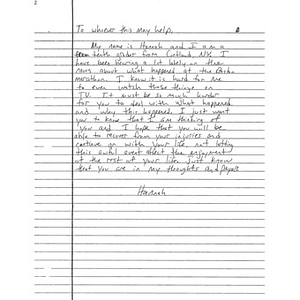 To whoever this may help,
My name is Hannah and I am a
tenth grader from Cortland, NY. I
have been hearing a lot lately on the
news about what happened at the Boston
marathon. I know it is hard for me
to even watch these things on
TV. It must be so much harder
for you to deal with what happened
and why this happened. I just want
you to know that I am thinking of
you and I hope that you will be
able to recover from your injuries and
continue go on with your life, not letting
this awful event affect the enjoyment
of the rest of your life. Just know
that you are in my thoughts and prayers
Hannah